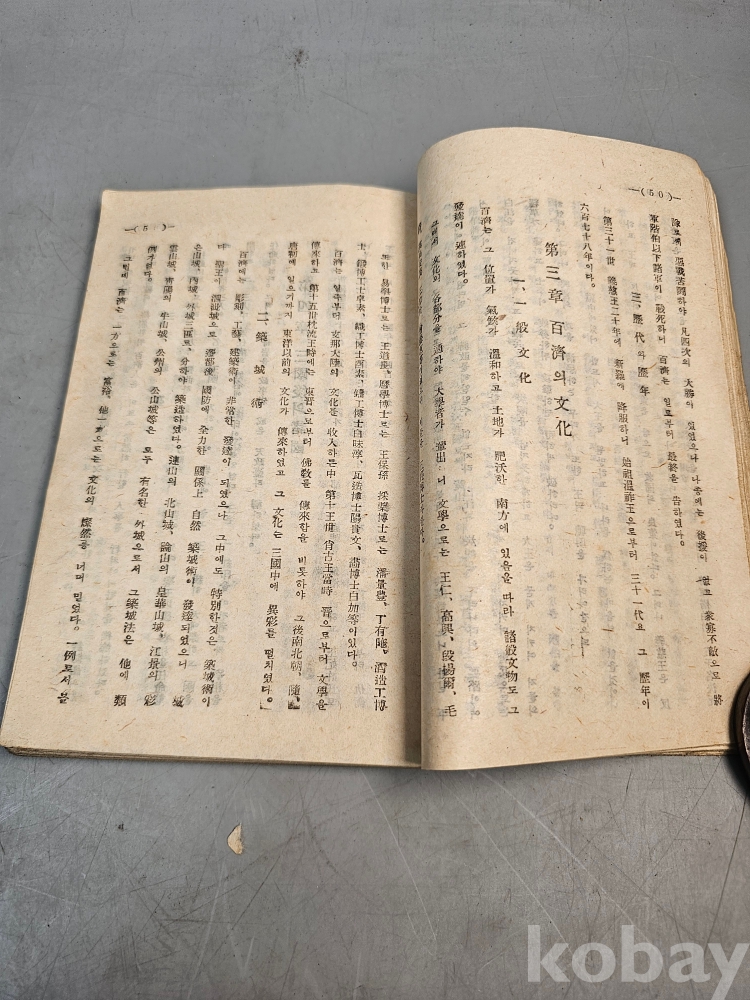 —(50)—
除로써 惡戰苦鬪하야 見四次의 大勝이 있었으나 나중에는 後援이 없고 衆寡不敵으로 將
軍階伯以下諸軍이 戰死하니 百濟는 일로부터 最終을 告하였다。
三、歷代와 歷年
第三十一世 義慈王二十年에 新羅에 降服하니 始祖溫祚王으로부터 三十一代요 그 歷年이
六百七十八年이다。
第三章 百濟의 文化
一、一般文化
百濟는 그 位置가 氣候가 溫和하고 土地가 肥沃한 南方에 있음을 따라 諸般文物도 그
發達이 速하였다。
그리하여 文化의 各部分을 通하야 大學者가 輩出 니 文學으로는 王仁、高興、段楊爾、毛
—(5
또한 易學博士로는 王道良、曆學博士로는 王保孫 採藥博士로는 潘量豊、丁有陁。酒造工博
士、鐵博工士卓素、織工博士西素、鑪工博士白昧淳、瓦塗博士陽貴文、畵博士白加等이있다。
百濟는 일즉부터 支那大陸의 文化를 收入하든中 第十三世 肖古王當時 晋으로부터 文學을
傳來하고 第十五世枕流王時에는 東晋으로부터 佛敎를 傳來함을 비롯하야 그後南北朝、隨、
唐朝에 일으기까지 東洋以前의 文化가 傳來하였고 그 文化는 三國中에 異彩를 떨치였다。
二、築城術
百濟에는 彫刻、工藝、建築術이 非常한 發達이 되였으나 그中에도 特別한것은 築城術이
다 聖王이 泗沘城으로 遷都後 國防에 全力한 關係上 自然 築城術이 發達되였으니 城
은山城、內城、外城三區로、分하야 築造하였다。連山의 北山城、論山의 皇華山城、江景의 彩
雲山城、富陽의 半山城、公州의 公山城等은 모두 有名한 外城으로서 그築城法은 他에 類
例가없다。
그런데 百濟는 一方으로는 富裕、他一方으로는 文化의 燦然을 너머 믿었다。一例로서 들
kobay